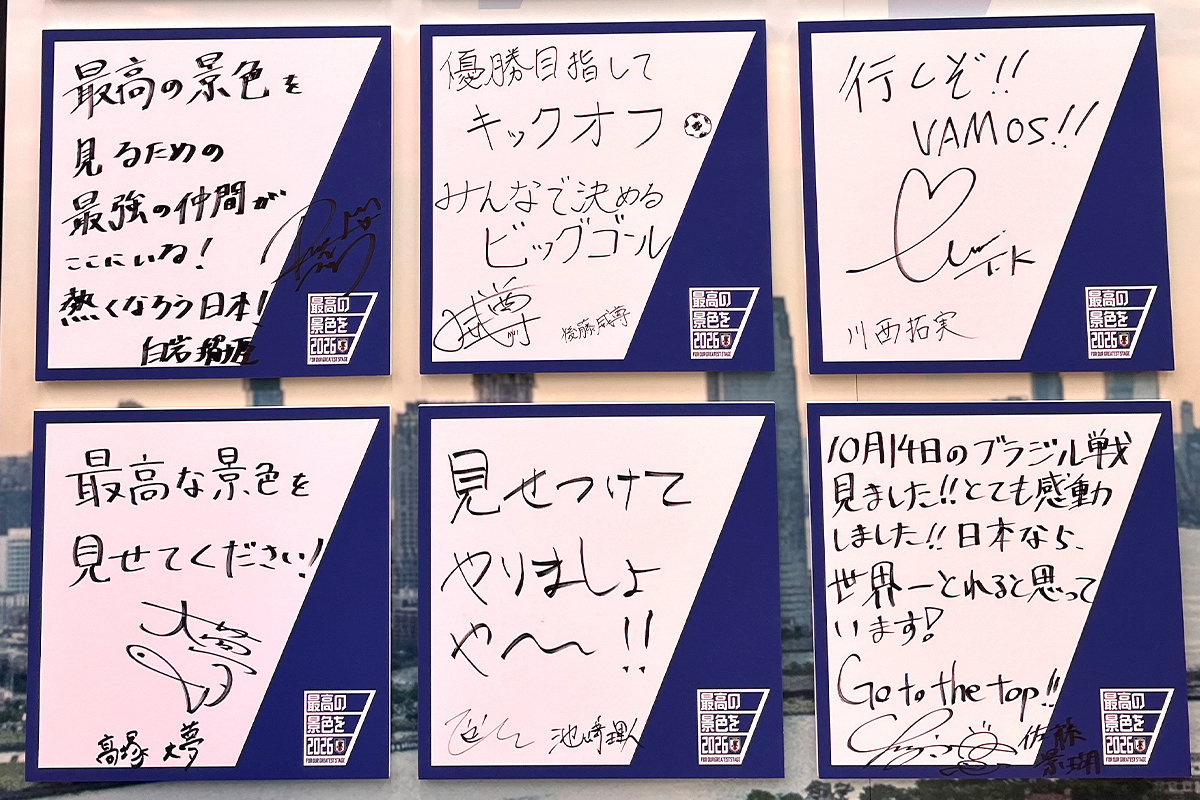 最高の景色を
見るための
最強の仲間が
ここにいる!
熱くなろう日本!
白岩瑠姫
最高の
景色を
2026
FOR OUR GREATEST STAGE
優勝目指して
キックオフ
みんなで決める
ビッグゴール
威尊
後藤威尊
最高の
景色を
2026
FOR OUR GREATEST STAGE
行くぞ!!
VAMOS!!
T.K
川西拓実
最高の
景色を
2026
FOR OUR GREATEST STAGE
最高な景色を
見せてください!
大夢
髙塚 大夢
最高の
景色を
2026
FOR OUR GREATEST STAGE
見せつけて
やりましょ
や〜!!
池﨑理人
最高の
景色を
2026
FOR OUR GREATEST STAGE
10月14日のブラジル戦
見ました!!とても感動
しました!!日本なら、
世界一とれると思って
います!
Go to the top!!
佐藤
景瑚
最高の
景色を
2026
FOR OUR GREATEST STAGE